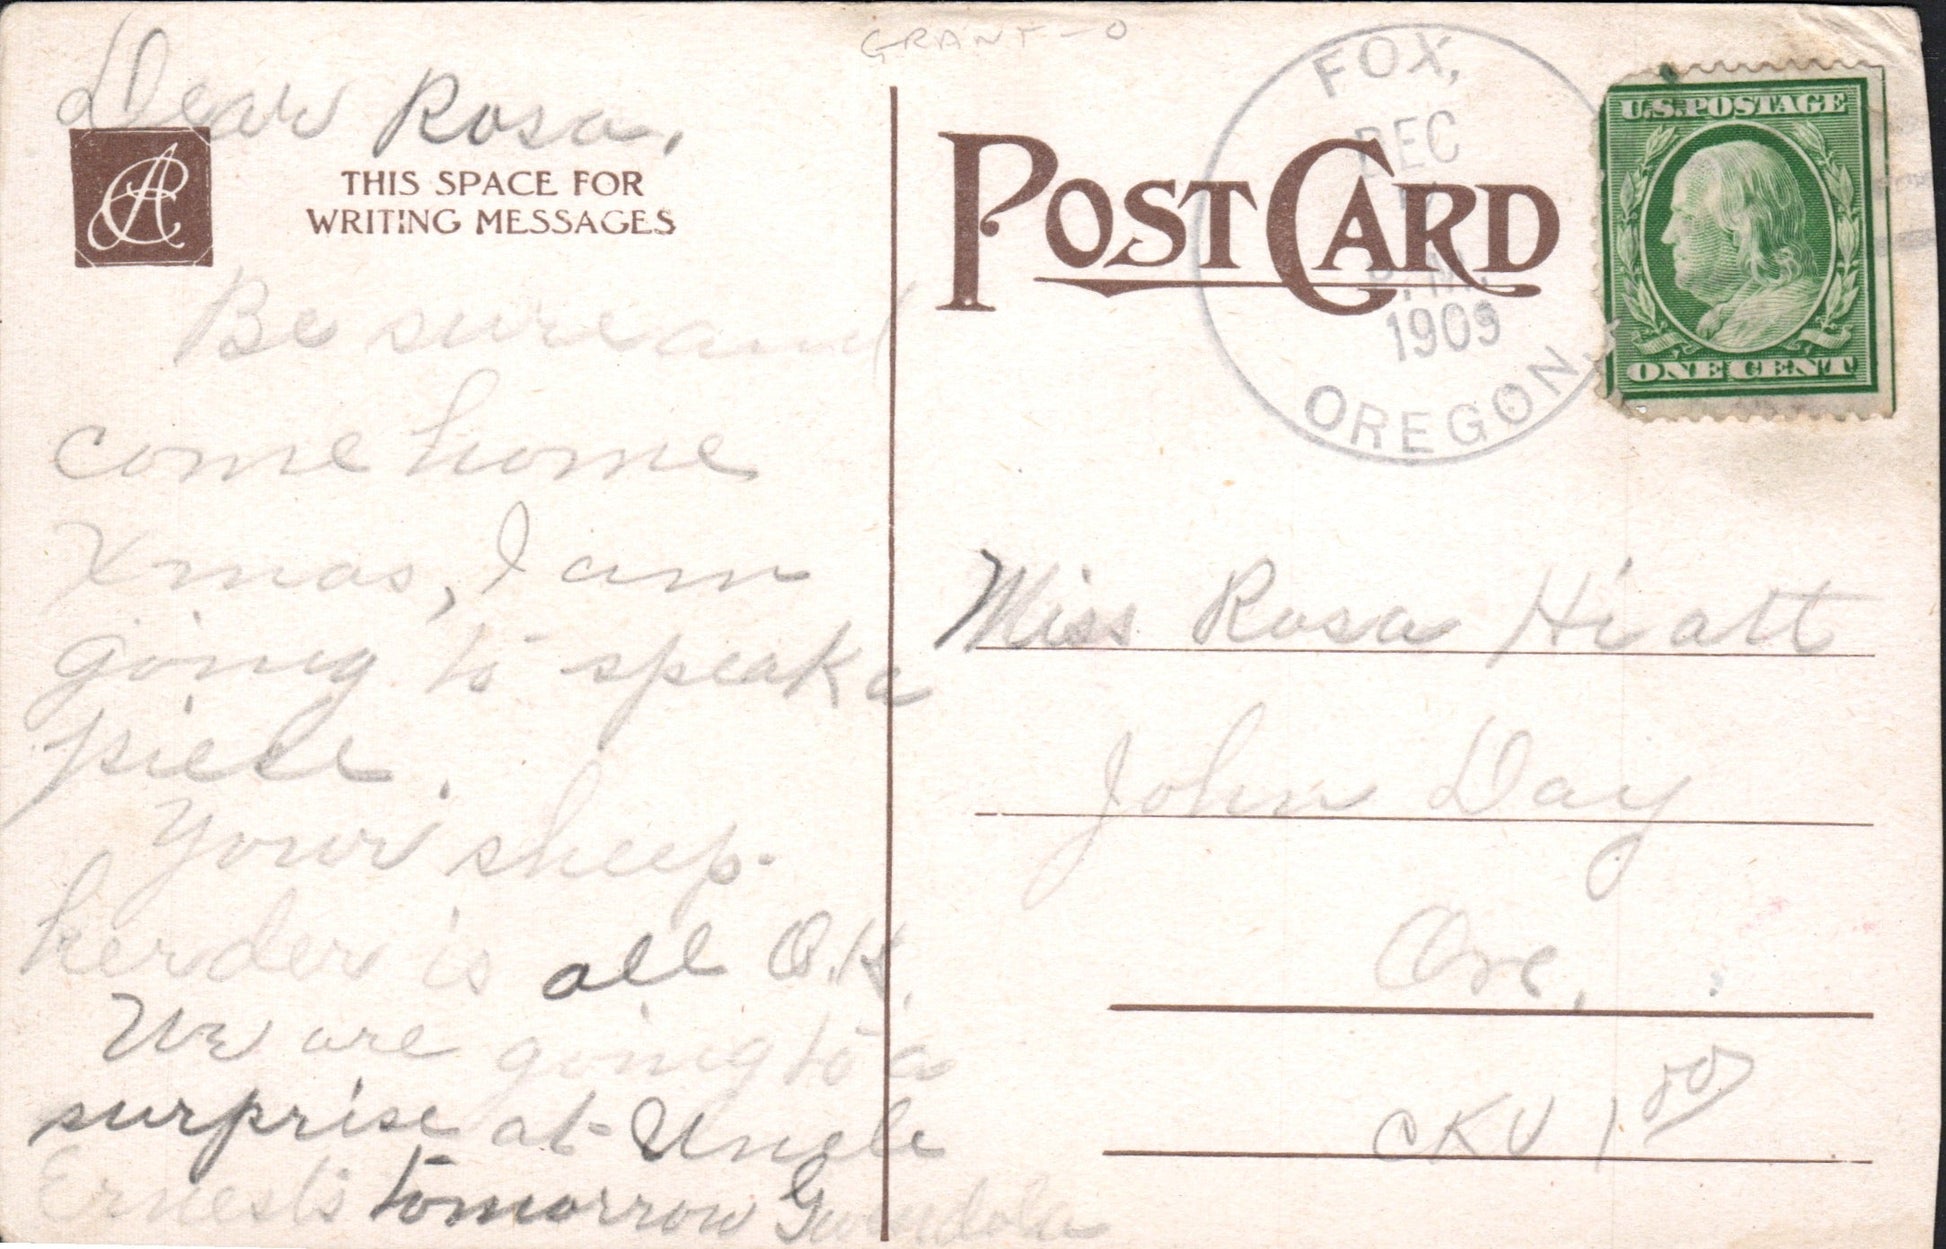 GRANT - O
Dear Rosa,
THIS SPACE FOR
WRITING MESSAGES
Be sure and
come home
Xmas, I am
going to speak a
piece.
Your sheep-
herder is all O.K.
We are going to a
surprise at Uncle
Ernest's tomorrow Gwendola
POST CARD
FOX,
DEC
P.M.
1909
OREGON
U.S. POSTAGE
ONE CENT
Miss Rosa Hiatt
John Day
Ore.
CKU 1 00